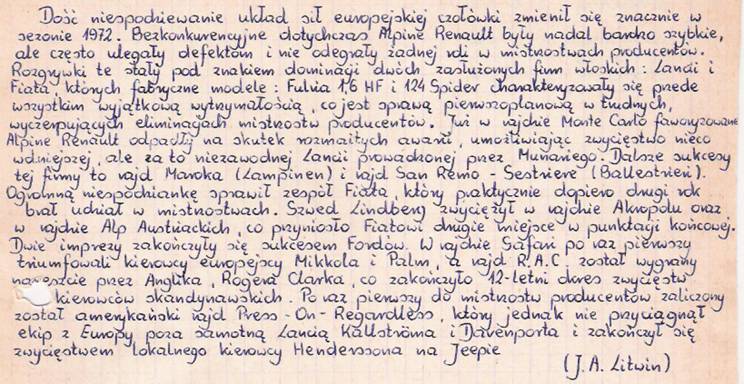 Dość niespodziewanie układ sił europejskiej czołówki zmienił się znacznie w
sezonie 1972. Bezkonkurencyjne dotychczas Alpine Renault były nadal bardzo szybkie,
ale często ulegały defektom i nie odegrały żadnej roli w mistrzostwach producentów.
Rozgrywki te stały pod znakiem dominacji dwóch zasłużonych firm włoskich: Lancii i
Fiata, których fabryczne modele: Fulvia 1,6 HF i 124 Spider charakteryzowały się przede
wszystkim wyjątkową wytrzymałością, co jest sprawą pierwszoplanową w trudnych,
wyczerpujących eliminacjach mistrzostw producentów. Już w rajdzie Monte Carlo faworyzowane
Alpine Renault odpadły na skutek rozmaitych awarii, umożliwiając zwycięstwo nieco
wolniejszej, ale za to niezawodnej Lancii prowadzonej przez Munariego. Dalsze sukcesy
tej firmy to rajd Maroka (Lampinen) i rajd San Remo - Sestriere (Ballestrieri).
Ogromną niespodziankę sprawił zespół Fiata, który praktycznie dopiero drugi rok
brał udział w mistrzostwach. Szwed Lindberg zwyciężył w rajdzie Akropolu oraz
w rajdzie Alp Austriackich, co przyniosło Fiatowi drugie miejsce w punktacji końcowej.
Dwie imprezy zakończyły się sukcesem Fordów. W rajdzie Safari po raz pierwszy
triumfowali kierowcy europejscy Mikkola i Palm, a rajd R.A.C. został wygrany
nareszcie przez Anglika, Rogera Clarka, co zakończyło 12-letni okres zwycięstw
kierowców skandynawskich. Po raz pierwszy do mistrzostw producentów zaliczony
został amerykański rajd Press-On-Regardless, który jednak nie przyciągnął
ekip z Europy poza samotną Lancią Källströma i Davenporta i zakończył się
zwycięstwem lokalnego kierowcy Henderssona na Jeepie
(J.A. Litwin)